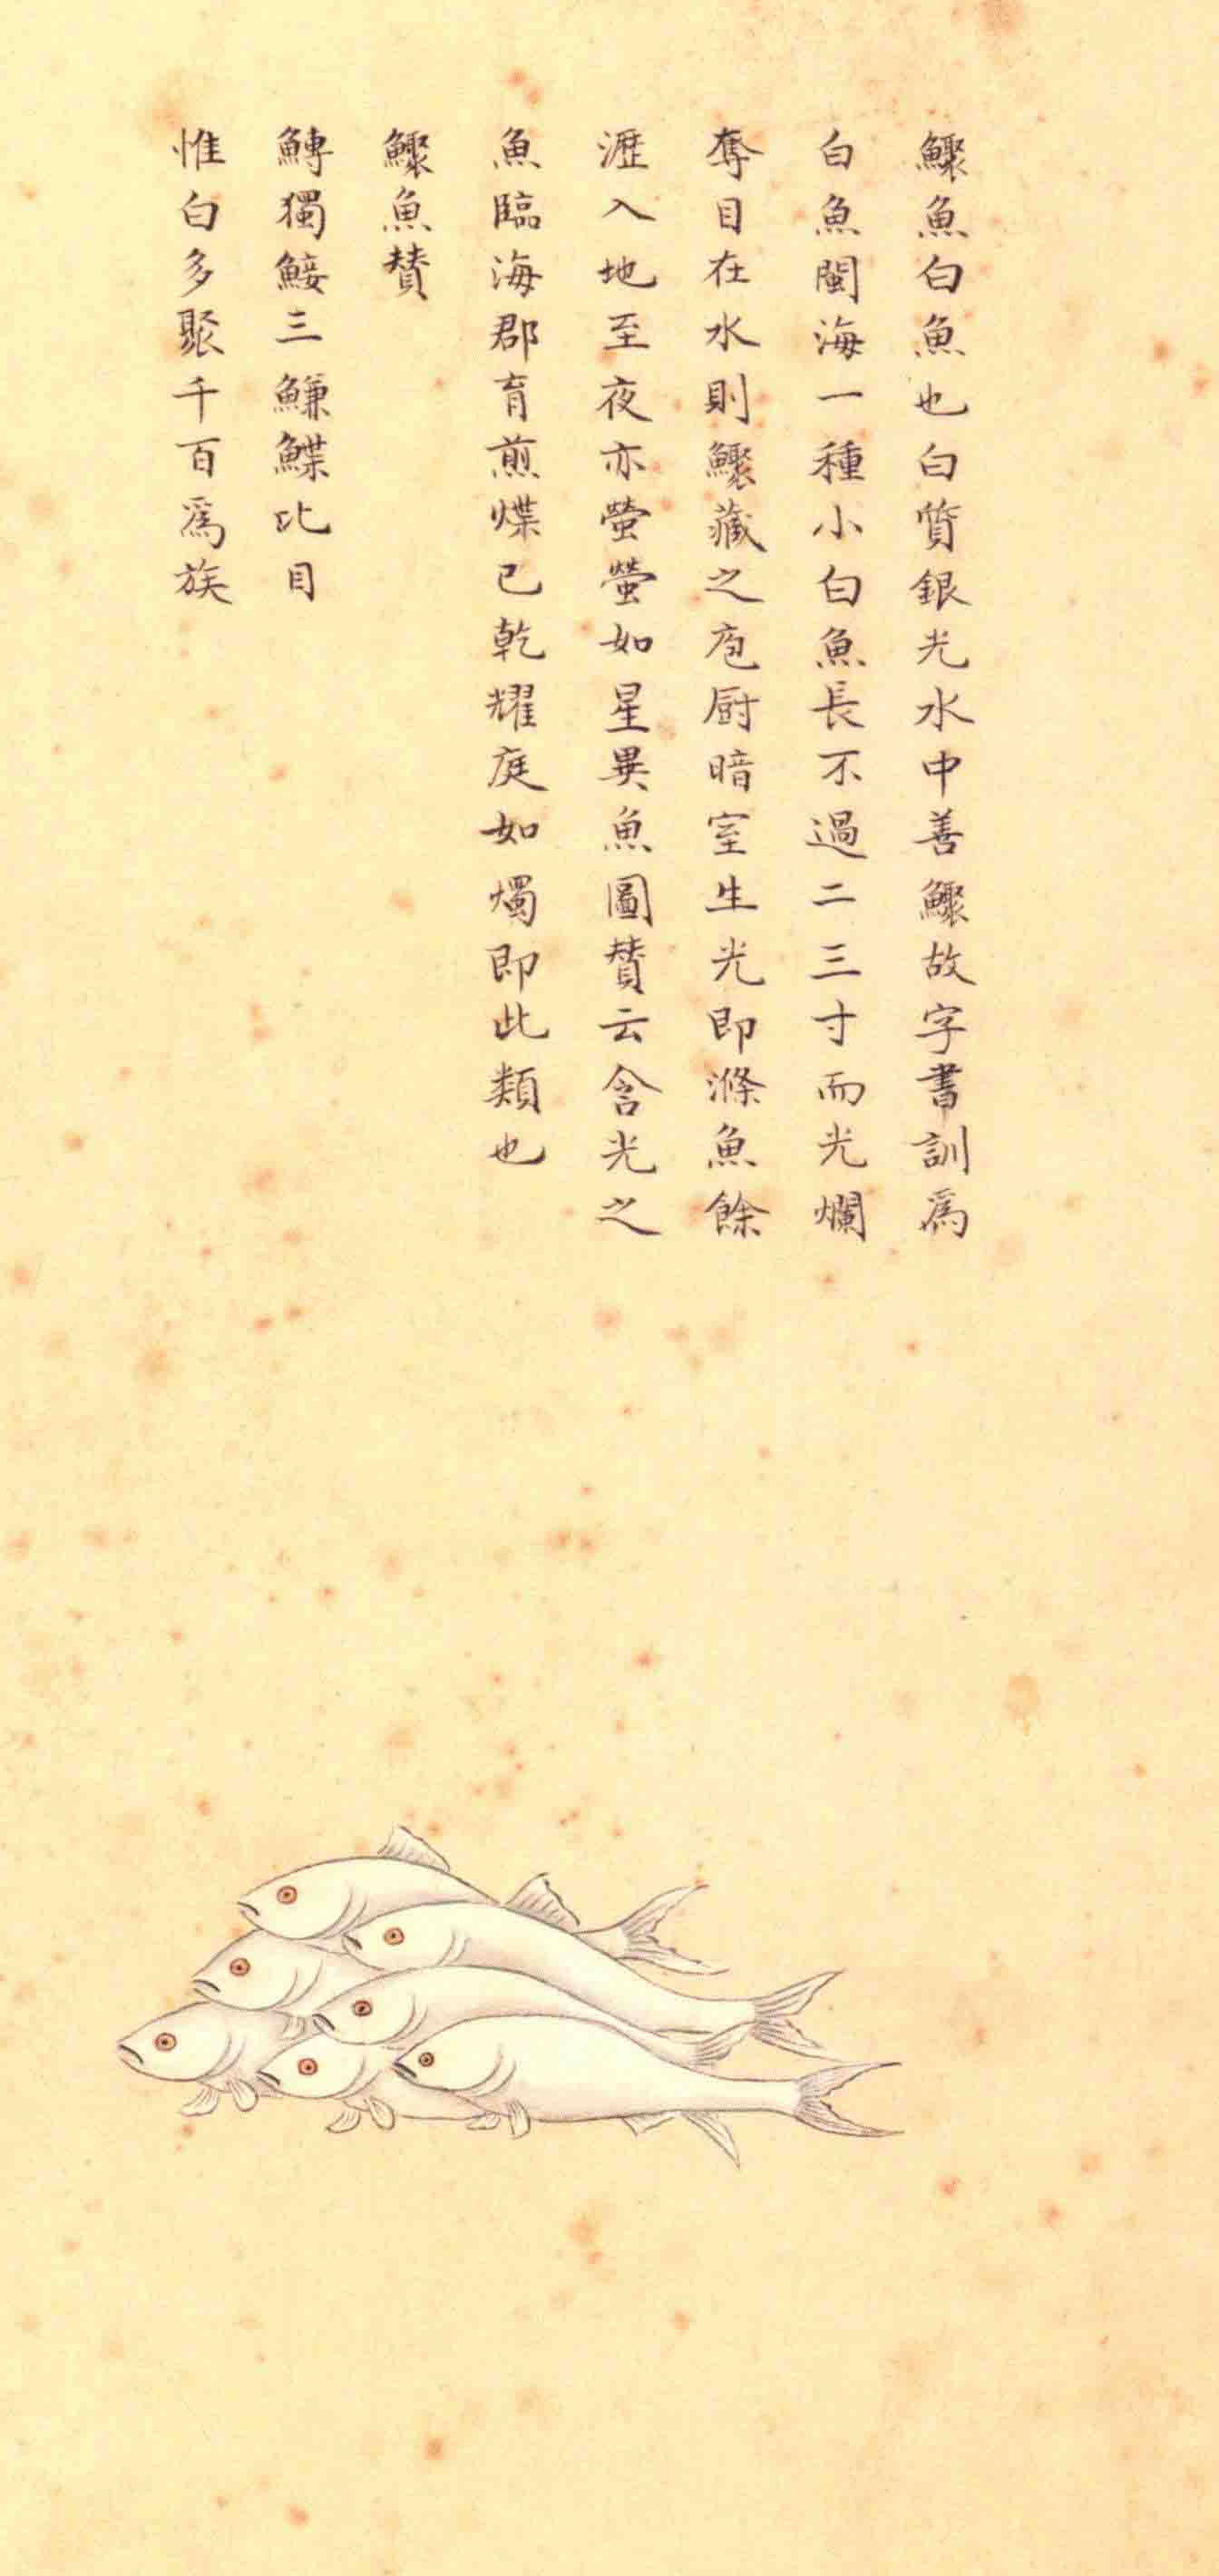 鱫魚白魚也白質銀光水中善鱫故字書訓爲
白魚閩海一種小白魚長不過二三寸而光爛
奪目在水則鱫藏之庖厨暗室生光即滌魚餘
瀝入地至夜亦螢螢如星異魚圖賛云含光之
魚臨海郡育煎煠已乾耀庭如燭即此類也
魚賛
鱄獨鯜三鰜鰈比目
惟白多聚千百爲族